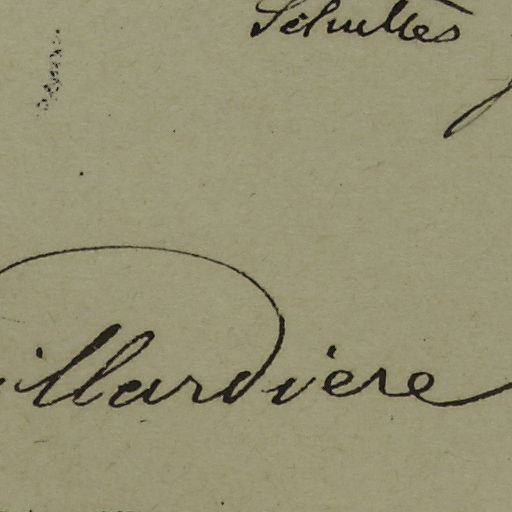 Schultes
illardiere